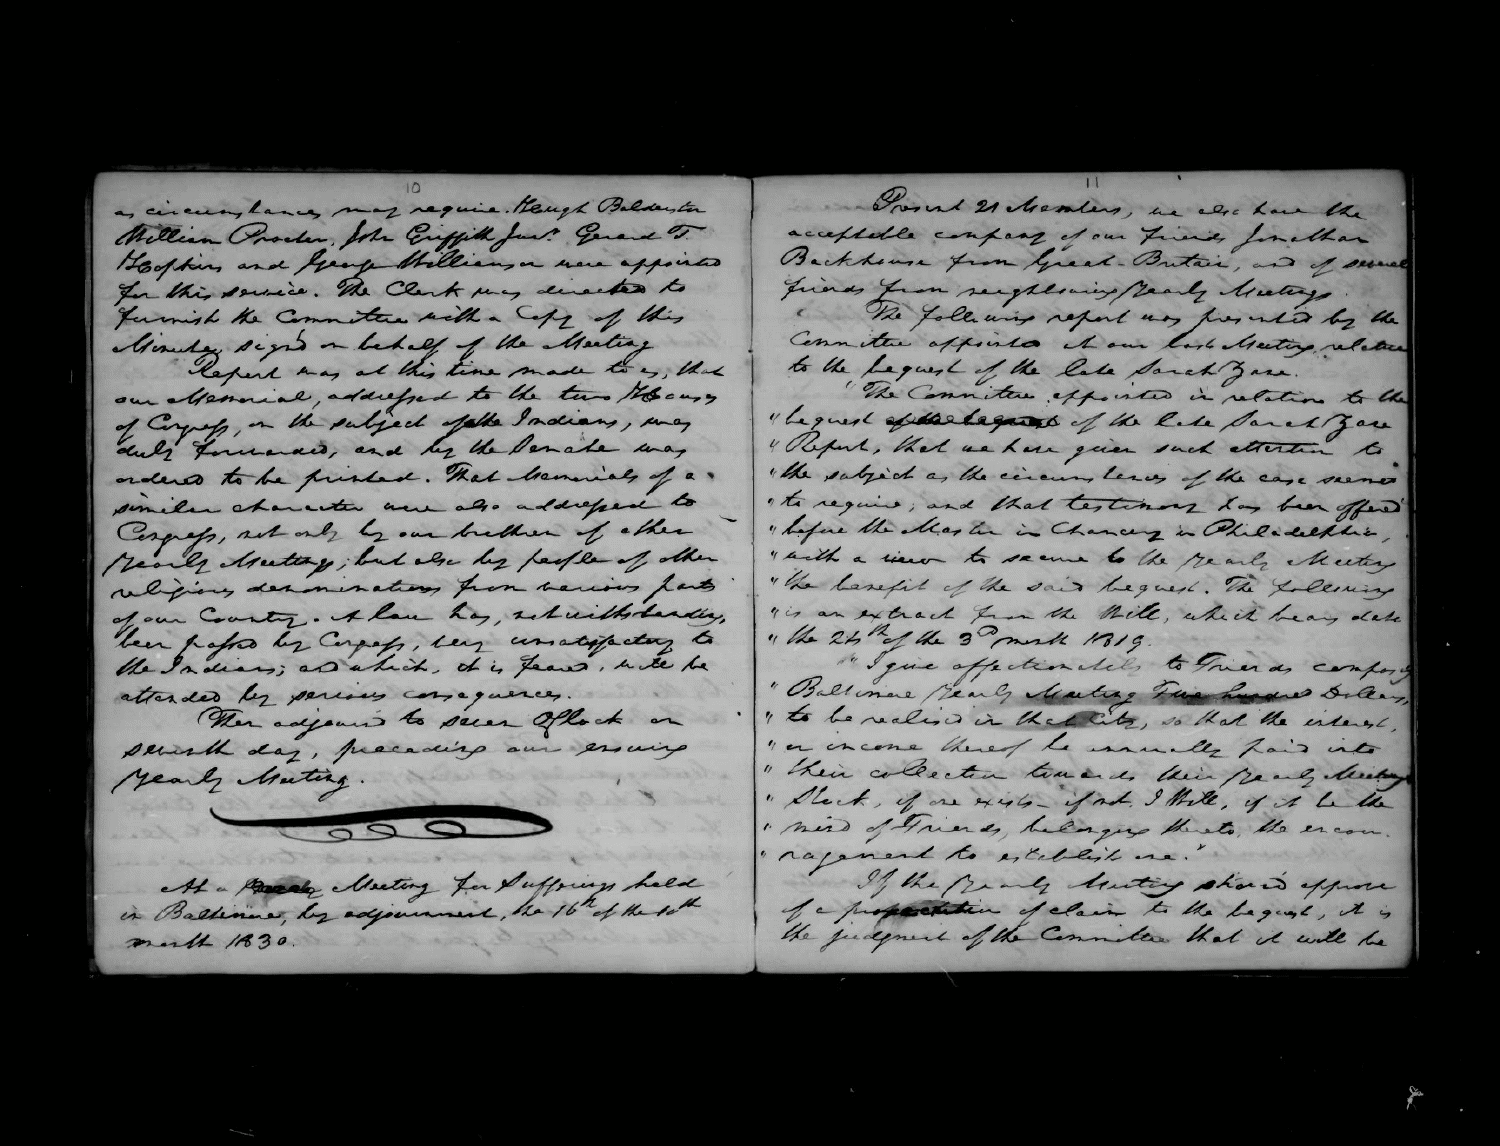 10
as circumstances may require. Hugh Balderston
William Procter, John Griffith Junr. Gerard T.
Hopkins and George Williamson were appointed
for this service. The Clerk was directed to
furnish the Committee with a Copy of this
Minute, sign'd on behalf of the Meeting
Report was at this time made to us, that
our Memorial, addressed to the two Houses
of Congress, on the subject of the Indians, was
duly forwarded, and by the Senate was
ordered to be printed. That Memorials of a
similar character were also addressed to
Congress, not only by our brethren of other
Yearly Meetings; but also by people of other
religious denominations from various parts
of our Country. A law has, notwithstanding,
been passed by Congress, very unsatisfactory to
the Indians; and which, it is feared, will be
attended by serious consequences.
Then adjourn'd to seven O'Clock on
seventh day, preceding our ensuing
Yearly Meeting.
At a Meeting for Sufferings held
in Baltimore, by adjournment, the 16th of the 10th
month 1830.
11
Present 21 Members, we also have the
acceptable company of our friends Jonathan
Backhouse from Great Britain, and of several
friends from neighbouring Yearly Meetings.
The following report was presented by the
Committee appointed at our last Meeting relative
to the bequest of the late Sarah Zane.
"The Committee appointed in relation to the
" bequest of the bequest of the late Sarah Zane
" Report, that we have given such attention to
" the subject as the circumstances of the case seemed
" to require, and that testimony has been offered
" before the Master in Chancery in Philadelphia,
" with a view to secure to the Yearly Meeting
" the benefit of the said bequest. The following
" is an extract from the Will, which bears date
" the 24th of the 3d month 1819.
" "I give affectionately to Friends composing
" Baltimore Yearly Meeting Five hundred Dollars,
" to be realised in that City, so that the interest,
" or income thereof be annually paid into
" their collection towards their Yearly Meeting
" Stock, if one exists - if not, I Will, if it be the
" mind of Friends, belonging thereto, the encou-
" ragement to establish one."
If the Yearly Meeting should approve
of a of claim to the bequest, it is
the judgment of the Committee that it will be